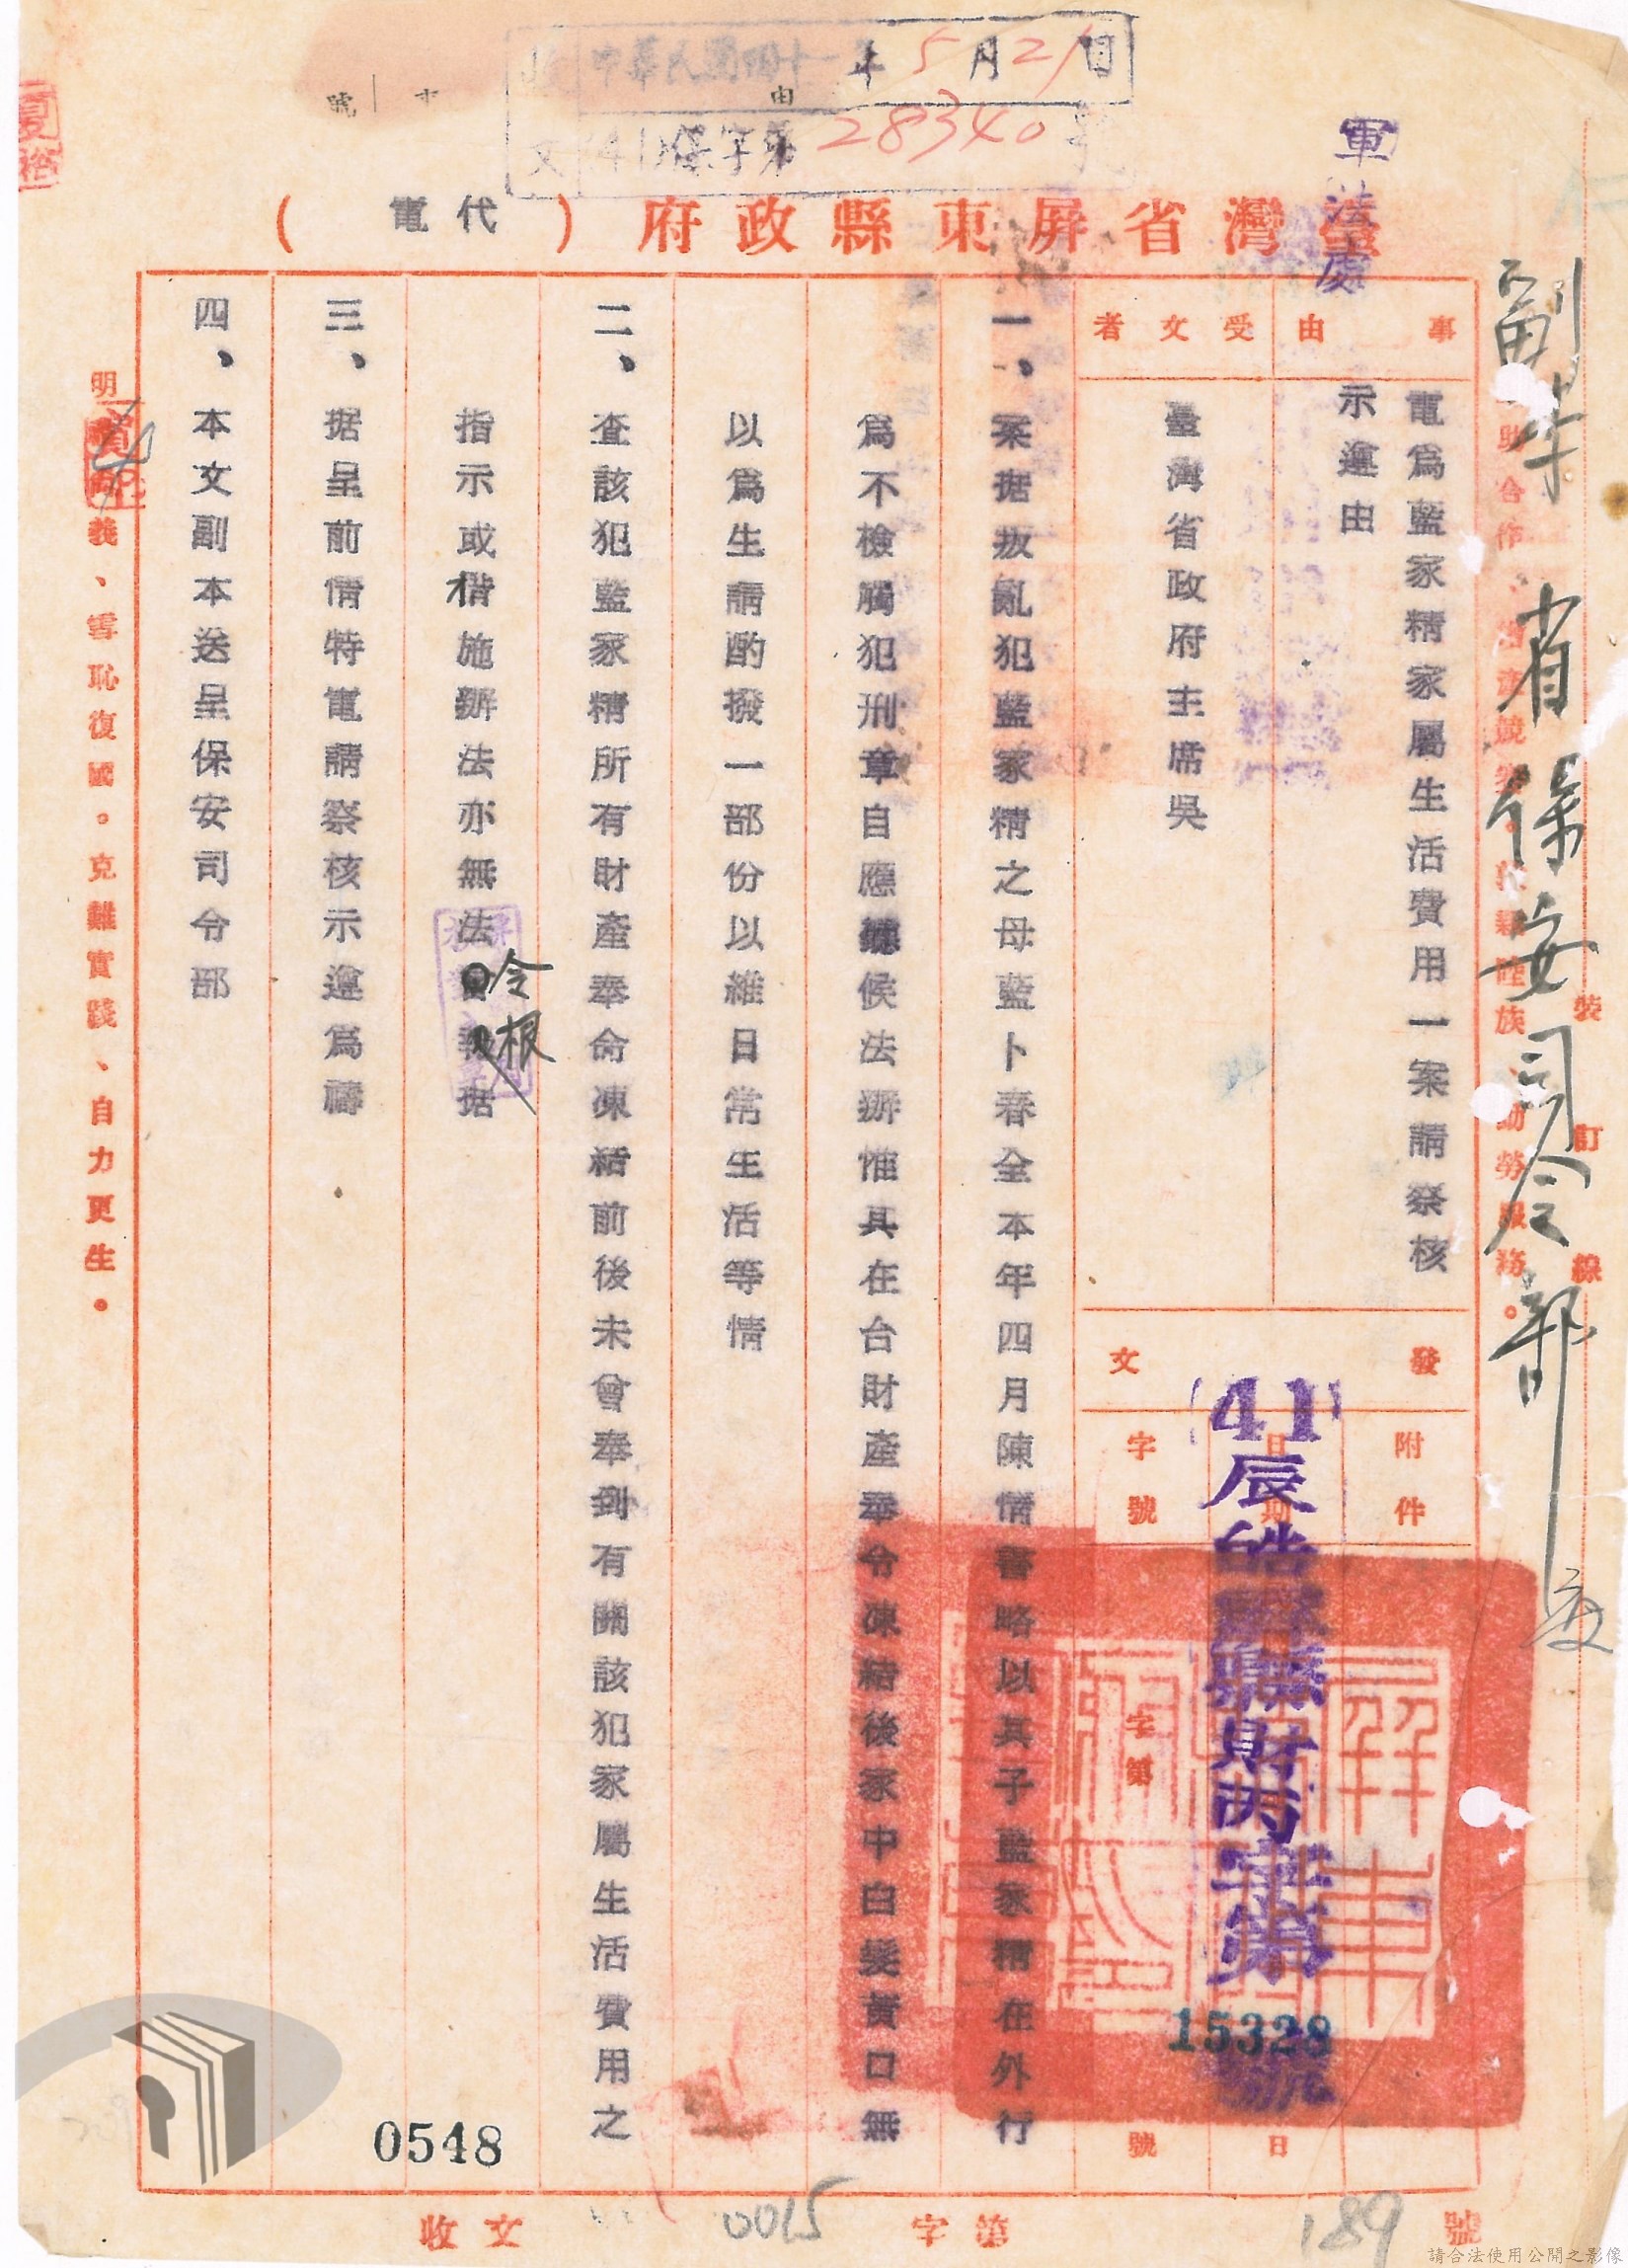 中華民國四十一年5月21日
文(41)保字第28340號
軍法處
臺灣省屏東縣政府(代電)
副本 省保安司令部
裝訂線
事由
電為藍家精家屬生活費用一案請察核
示遵由
受文者
臺灣省政府主席吳
發文
附件
日期
字號
(41)辰皓屏縣財丙字第15328號
字第
號
日
一、案据叛亂犯藍家精之母藍卜春仝本年四月陳情書略以其子藍家精在外行
為不檢觸犯刑章自應聽候法辦惟具在台財產奉令凍結後家中白髮黃口無
以為生請酌撥一部份以維日常生活等情
二、查該犯藍家精所有財產奉命凍結前後未曾奉到有關該犯家屬生活費用之
指示或措施辦法亦無法令根据
三、据呈前情特電請察核示遵為禱
四、本文副本送呈保安司令部
義、雪恥復國。克難實踐、自力更生。
0548
收文
字第
號
0015
189
請合法使用公開之影像